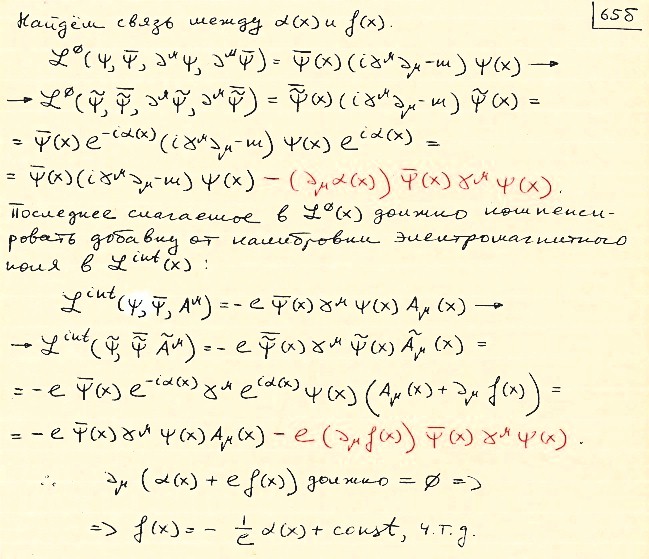 Найдём связь между α(x) и f(x).
65б
ℒ⁰(ψ, ψ̄, ∂ᵘψ, ∂ᵘψ̄) = ψ̄(x)(iγᵘ∂ᵤ-m) ψ(x) →
→ ℒ⁰(ψ̃, ψ̃̄, ∂ᵘψ̃, ∂ᵘψ̃̄) = ψ̃̄(x)(iγᵘ∂ᵤ-m) ψ̃(x) =
= ψ̄(x) e^{-iα(x)}(iγᵘ∂ᵤ-m) ψ(x) e^{iα(x)} =
= ψ̄(x)(iγᵘ∂ᵤ-m) ψ(x) - (∂ᵤα(x)) ψ̄(x) γᵘ ψ(x).
Последнее слагаемое в ℒ⁰(x) должно компенси-
ровать добавку от калибровки электромагнитного
поля в ℒ^{int}(x):
ℒ^{int}(ψ, ψ̄, Aᵘ) = - e ψ̄(x) γᵘ ψ(x) Aᵤ(x) →
→ ℒ^{int}(ψ̃, ψ̃̄ Ãᵘ) = - e ψ̃̄(x) γᵘ ψ̃(x) Ãᵤ(x) =
= - e ψ̄(x) e^{-iα(x)} γᵘ e^{iα(x)} ψ(x) (Aᵤ(x) + ∂ᵤ f(x)) =
= - e ψ̄(x) γᵘ ψ(x) Aᵤ(x) - e (∂ᵤf(x)) ψ̄(x) γᵘ ψ(x).
∴ ∂ᵤ (α(x) + e f(x)) должно = 0 =>
=> f(x) = - 1/e α(x) + const, ч.т.д.